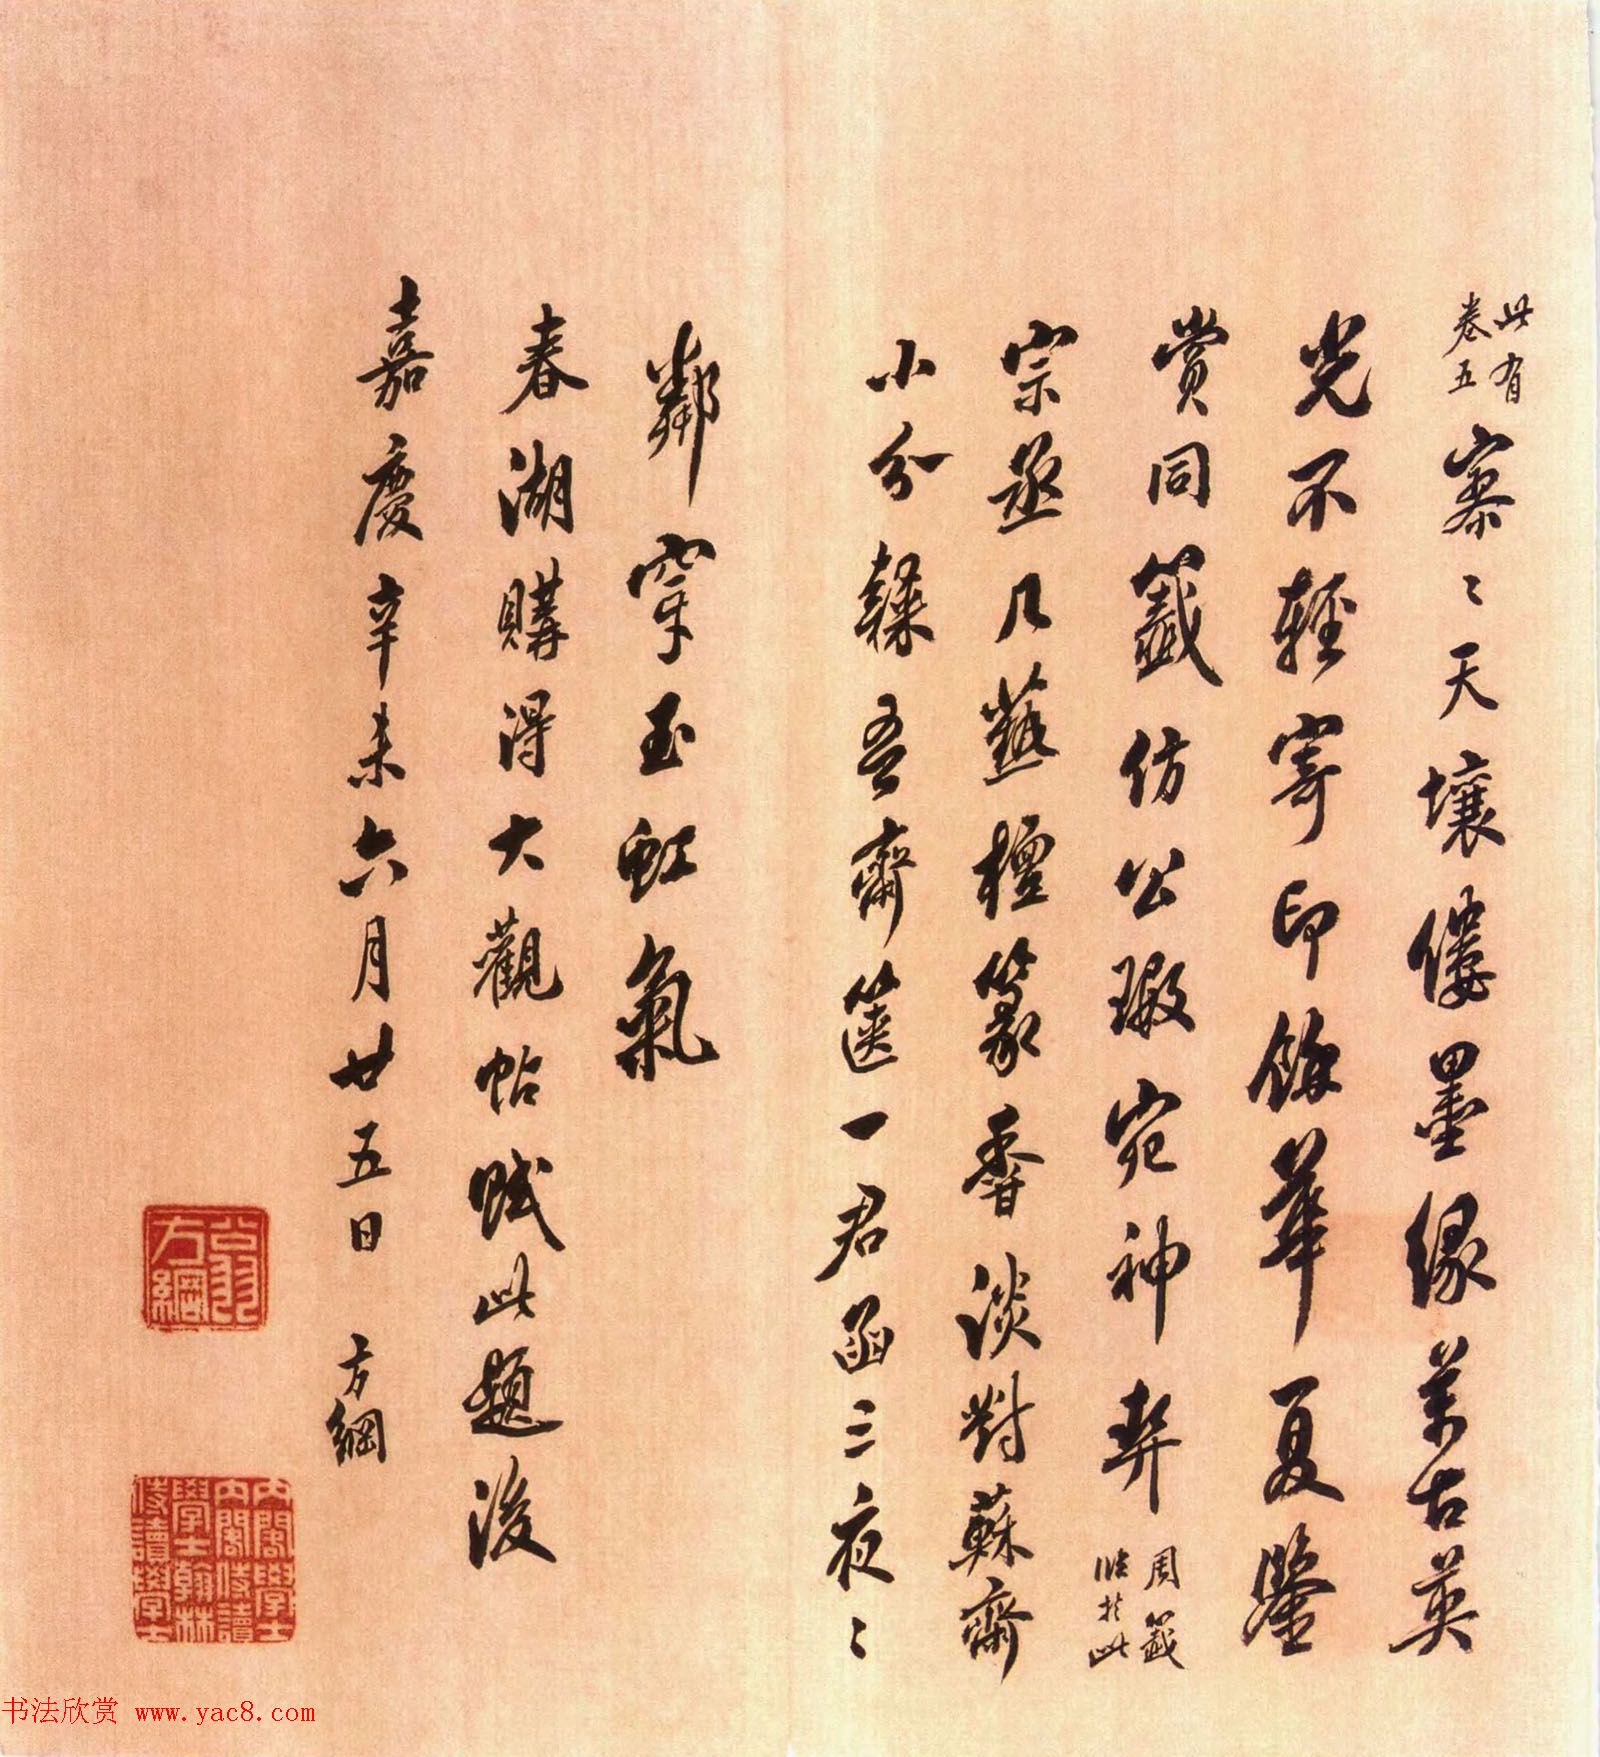 此有
卷五
寥〻天壤僂墨緣萬古英
光不輕寄印餘華夏鑒
賞同籤仿公瑕宛神契
周籤
於此
宗丞几爇檀篆香淡對蘇齋
小分隸吾齋篋一君函三夜〻
鄰穿玉虹氣
春湖購得大觀帖賦此題後
嘉慶辛未六月廿五日 方綱
翁
方綱
內閣學士
內閣侍讀
學士翰林
侍讀學士
书法欣赏 www.yac8.com